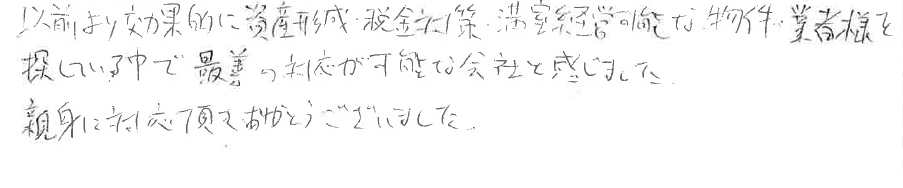 以前より効果的に資産形成・税金対策・満室経営可能な物件・業者様を
探している中で最善の対応が可能な会社と感じました。
親身に対応頂きありがとうございました。